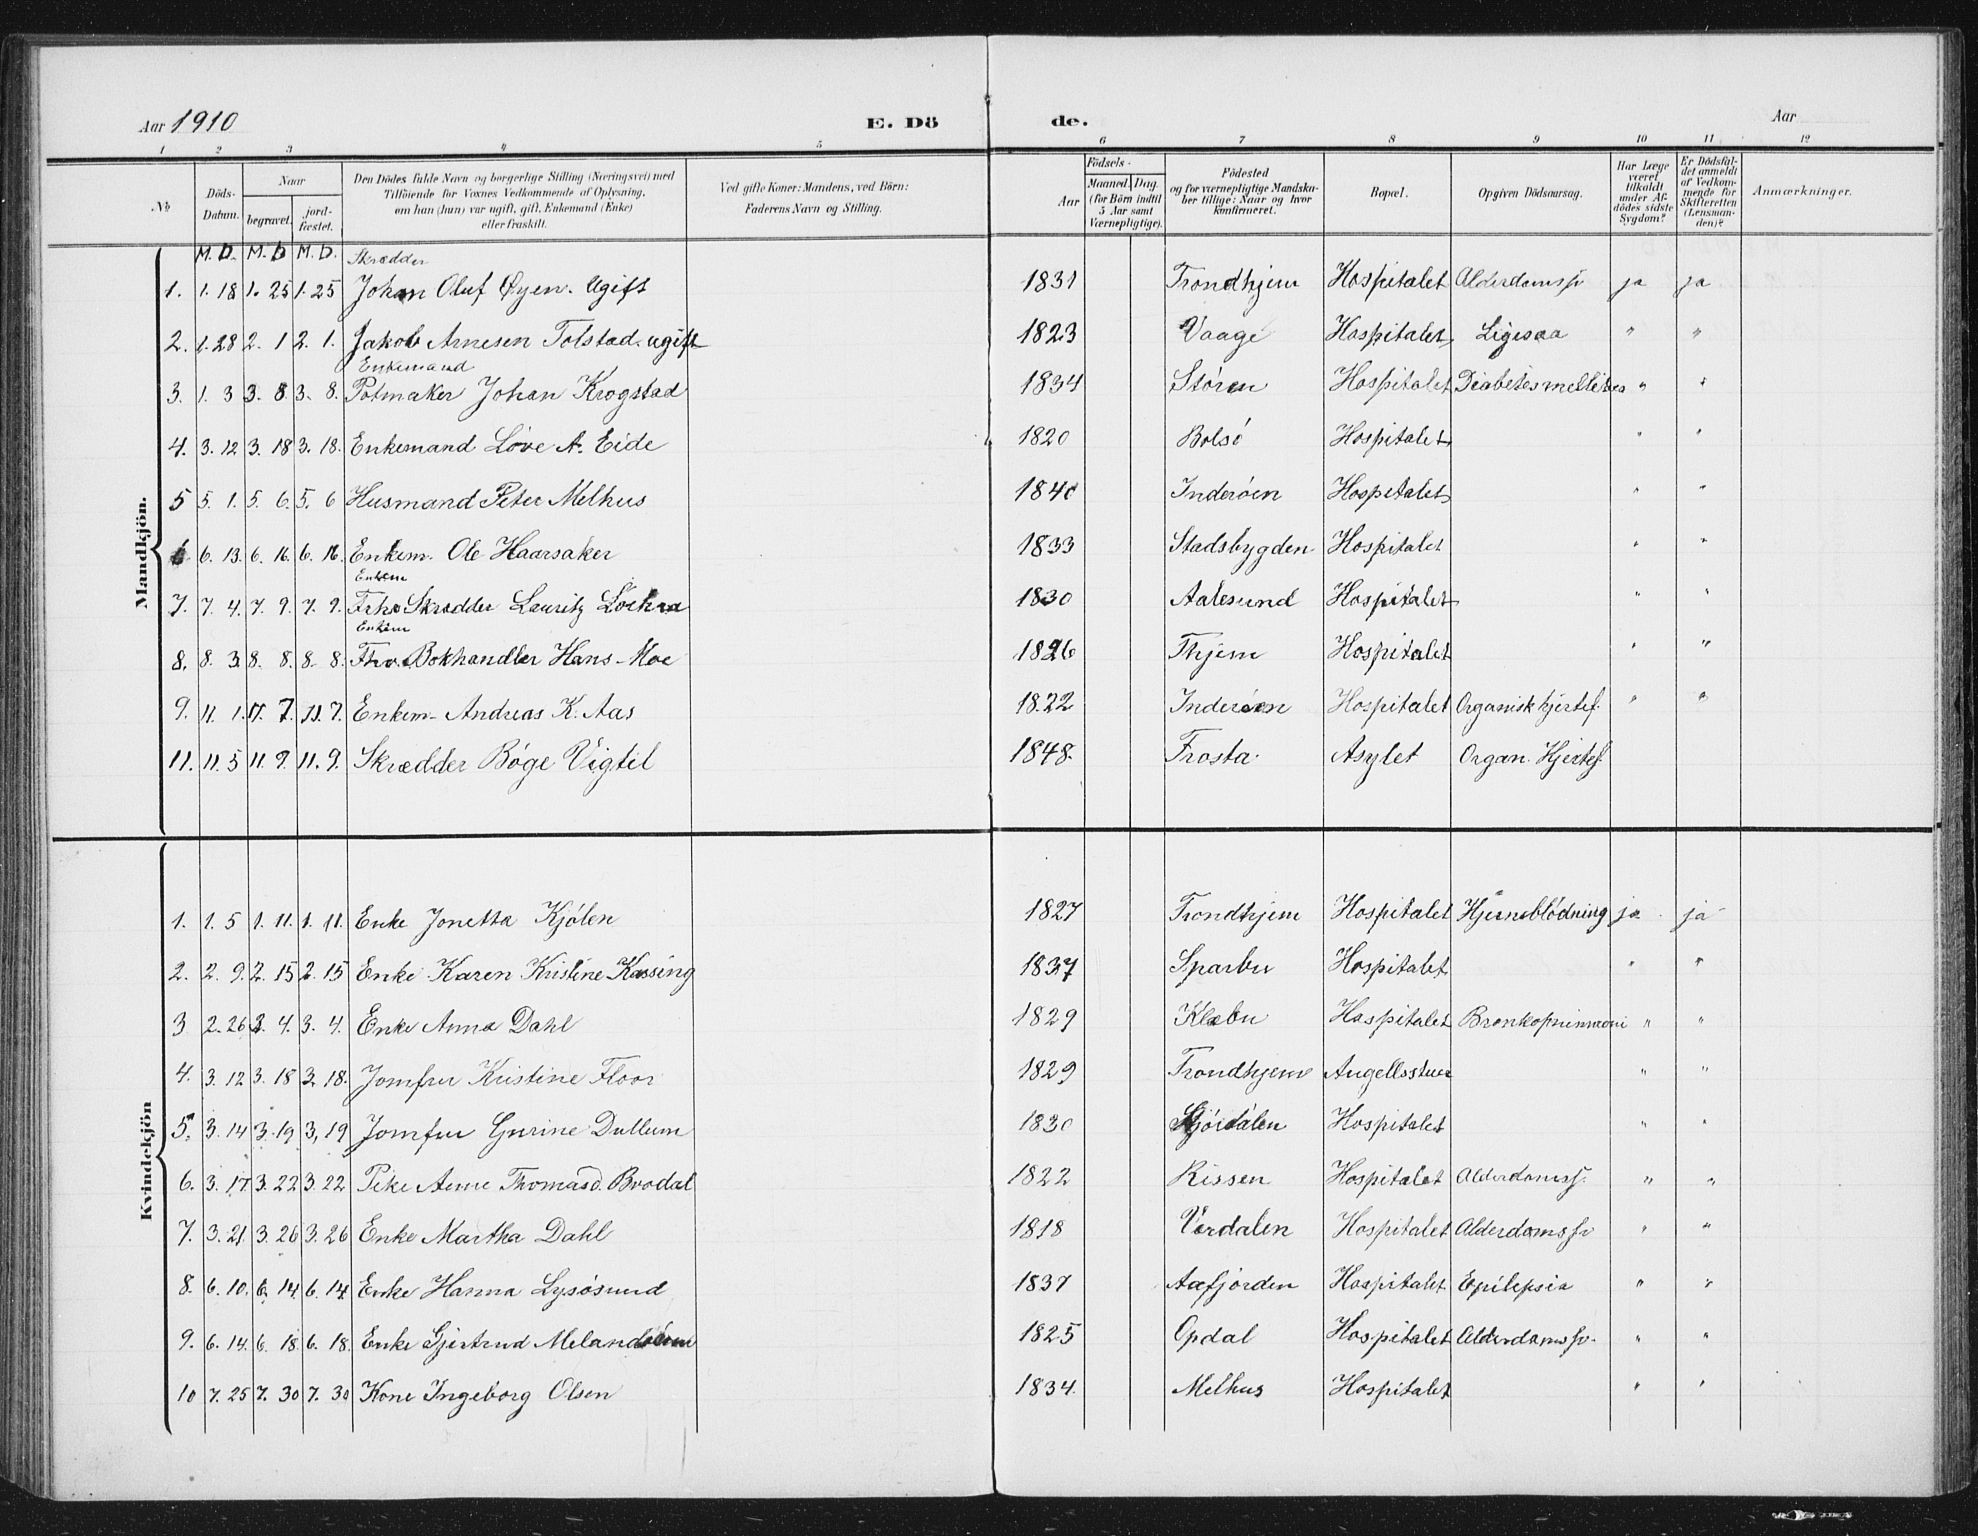 Aar 1910 E. Dö de. Aar
1 2 3 4 5 6 7 8 9 10 11 12
№ Döds-Datum. Naar begravet. jord-fæstet. Den Dödes fulde Navn og borgerlige Stilling (Næringsvei) med Tilföiende for Voxnes Vedkommende af Oplysning, om han (hun) var ugift, gift, Enkemand (Enke) eller fraskilt. Ved gifte Koner: Mandens, ved Börn: Faderens Navn og Stilling. Aar Födsels- Maaned. Dag. (for Börn indtil 5 Aar samt Værnepligtige). Födested og for værnepligtige Mandskaber tillige: Naar og hvor konfirmeret. Bopæl. Opgiven Dödsaarsag. Har Læge været tilkaldt under Afdödes sidste Sygdom? Er Dödsfaldet anmeldt af Vedkommende for Skifteretten (Lensmanden)? Anmærkninger.
M. D. M. D M. D. Skrædder
Mandkjön.
1. 1. 18 1. 25 1. 25 Johan Oluf Øyen. Ugift 1831 Trondhjem Hospitalet Alderdomssv ja ja
2. 1. 28 2. 1 2. 1. Jakob Arnesen Tolstad. ugift 1823 Vaage Hospitalet Ligesaa " "
Enkemand
3. 1. 3 3. 8 3. 8. Potmaker Johan Krogstad 1834 Stören Hospitalet Diabetes mellitus " "
4. 3. 12 3. 18 3. 18. Enkemand Löve A. Eide 1820 Bolsö Hospitalet " "
5 5. 1. 5. 6. 5. 6 Husmand Peter Melhus 1840 Inderöen Hospitalet " "
6 6. 13. 6. 16. 6. 16. Enkem. Ole Haarsaker 1833 Stadsbygden Hospitalet " "
Enkem
7. 7. 4. 7. 9. 7. 9. Skrædder Lauritz 1830 Aalesund Hospitalet " "
Enkem
8. 8. 3. 8. 8. 8. 8. Bokhandler Hans Moe 1826 Thjem Hospitalet " "
9. 11. 1. 11. 7. 11. 7. Enkem- Andreas K. Aas 1822 Inderöen Hospitalet Organisk hjertef. " "
11. 11. 5 11. 9. 11. 9. Skrædder Böge Vigtil 1848. Frosta. Asylet Organ. Hjertef
Kvindekjön
1. 1. 5 1. 11. 1. 11. Enke Jonetta Kjölen 1827 Trondhjem Hospitalet Hjerneblödning ja ja
2. 2. 9. 2. 15 2. 15 Enke Karen Kristine Kassing 1837 Sparbu Hospitalet " "
3 2. 26 3. 4. 3. 4. Enke Anna Dahl 1829 Klæbu Hospitalet Bronkopneumoni " "
4. 3. 12 3. 18 3. 18. Jomfru Kristine Floor 1829 Trondhjem Angellsstuer " "
5. 3. 14 3. 19 3, 19 Jomfru Gurine Dullum 1830 Stjördalen Hospitalet " "
6. 3. 17 3. 22 3. 22 Pike Anne Thomasd. Brodal 1822 Rissen Hospitalet Alderdomssv. " "
7. 3. 21 3. 26 3. 26 Enke Martha Dahl 1818 Værdalen Hospitalet Alderdomssv " "
8. 6. 10. 6. 14. 6. 14. Enke Hanna Lysösund 1837 Aafjorden Hospitalet Epilepsia " "
9. 6. 14. 6. 18. 6. 18. Enke Gjertrud 1825 Opdal Hospitalet Alderdomssv. " "
10 7. 25 7. 30 7. 30 Kone Ingeborg Olsen 1834. Melhus Hospitalet " "